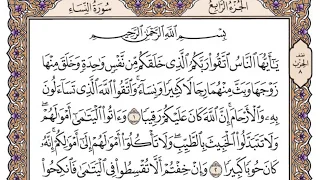 الجزء الرابع
سورة النساء
بسم الله الرحمن الرحيم
يَٰٓأَيُّهَا ٱلنَّاسُ ٱتَّقُوا۟ رَبَّكُمُ ٱلَّذِى خَلَقَكُم مِّن نَّفْسٍ وَٰحِدَةٍ وَخَلَقَ مِنْهَا
زَوْجَهَا وَبَثَّ مِنْهُمَا رِجَالًا كَثِيرًا وَنِسَآءً وَٱتَّقُوا۟ ٱللَّهَ ٱلَّذِى تَسَآءَلُونَ
بِهِۦ وَٱلْأَرْحَامَ إِنَّ ٱللَّهَ كَانَ عَلَيْكُمْ رَقِيبًا ١ وَءَاتُوا۟ ٱلْيَتَٰمَىٰٓ أَمْوَٰلَهُمْ
وَلَا تَتَبَدَّلُوا۟ ٱلْخَبِيثَ بِٱلطَّيِّبِ وَلَا تَأْكُلُوٓا۟ أَمْوَٰلَهُمْ إِلَىٰٓ أَمْوَٰلِكُمْ إِنَّهُۥ
كَانَ حُوبًا كَبِيرًا ٢ وَإِنْ خِفْتُمْ أَلَّا تُقْسِطُوا۟ فِى ٱلْيَتَٰمَىٰ فَٱنكِحُوا۟